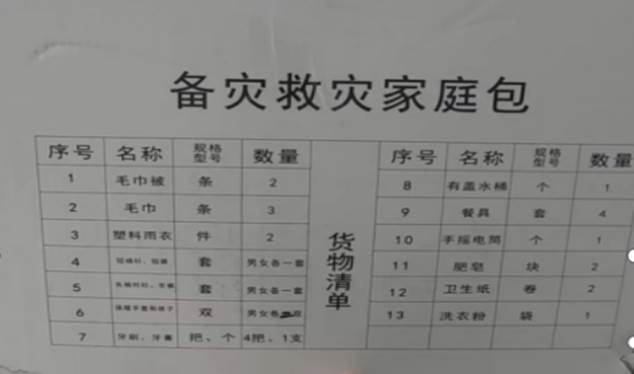 备灾救灾家庭包
序号 名称 规格型号 数量
1 毛巾被 条 2
2 毛巾 条 3
3 塑料雨衣 件 2
4 套 男女各一套
5 套 男女各一套
6 双 男女各 双
7 牙刷、牙膏 把、个 4把、1支
货物清单
序号 名称 规格型号 数量
8 有盖水桶 个 1
9 餐具 套 4
10 手摇电筒 个 1
11 肥皂 块 2
12 卫生纸 卷 2
13 洗衣粉 袋 1